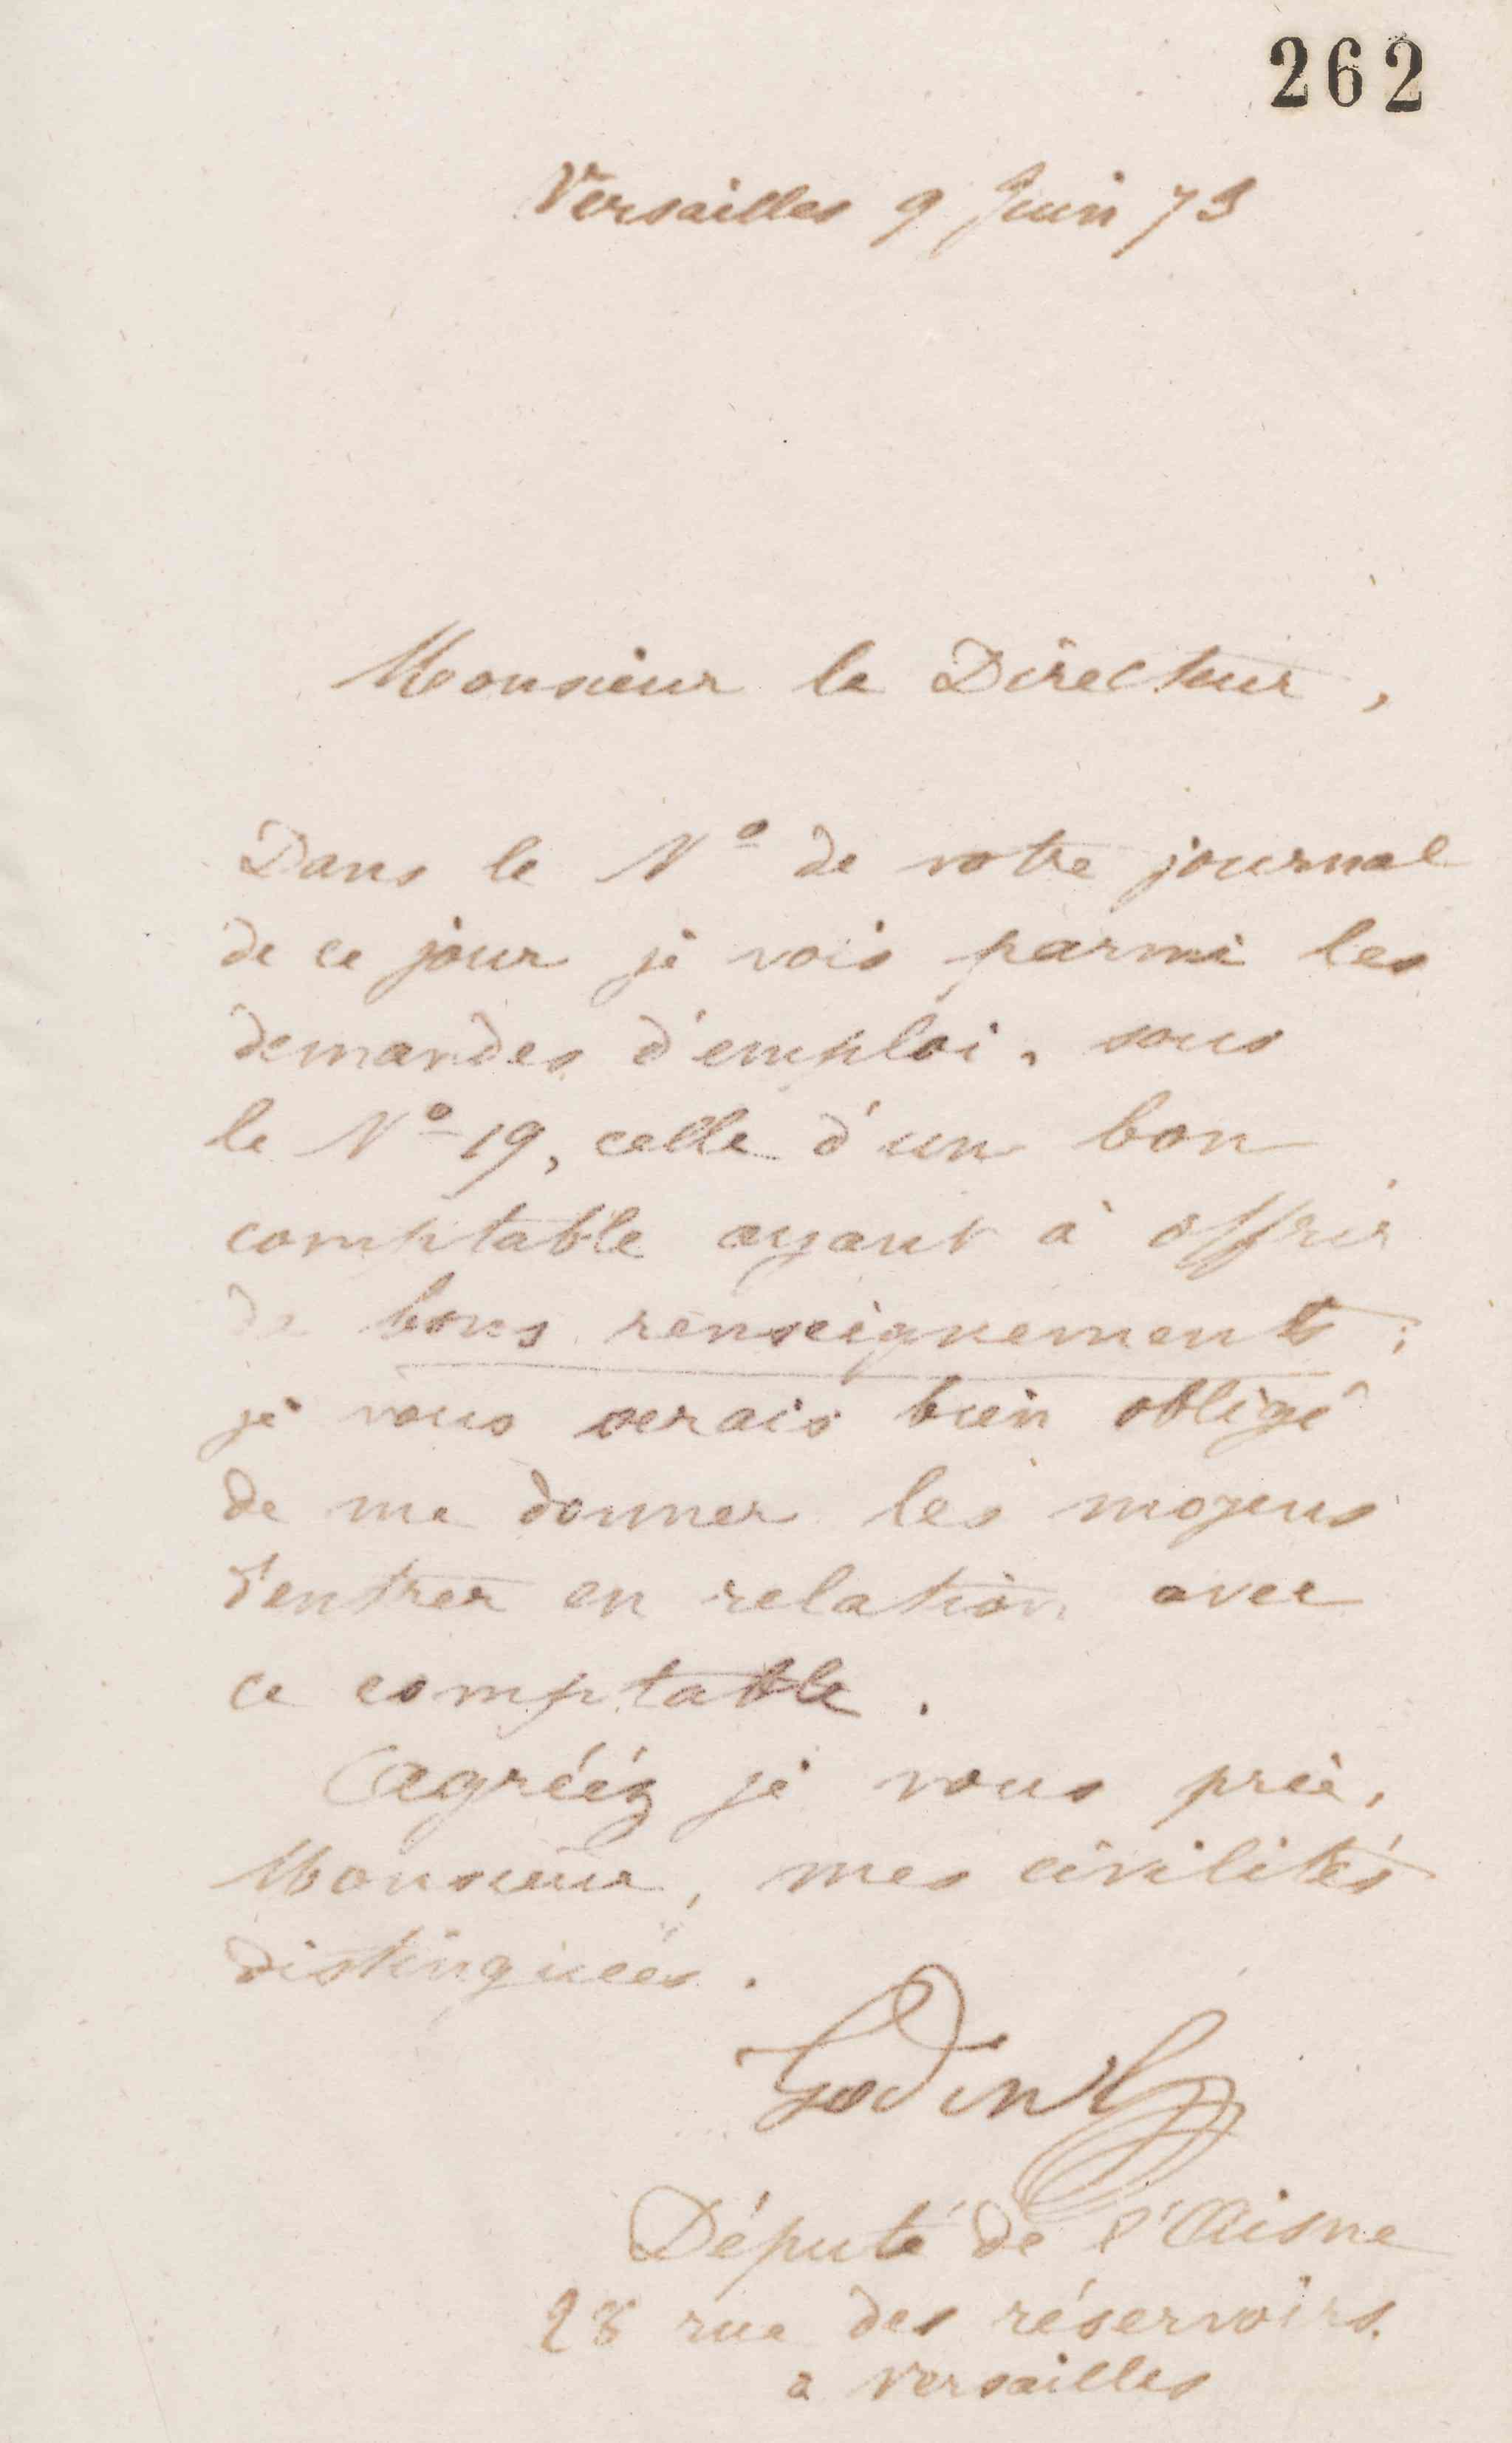 262
Versailles 9 Juin 73
Monsieur le Directeur,
Dans le Nº de votre journal
de ce jour je vois parmi les
demandes d'emploi, sous
le Nº 19, celle d'un bon
comptable ayant à offrir
de bons renseignements ;
je vous serais bien obligé
de me donner les moyens
d'entrer en relation avec
ce comptable.
Agréez je vous prie,
Monsieur, mes civilités
distinguées.
Godin
Député de l'Aisne
28 rue des réservoirs.
a Versailles